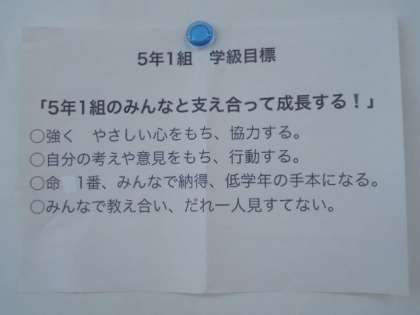 5年1組　学級目標
「5年1組のみんなと支え合って成長する！」
○強く　やさしい心をもち、協力する。
○自分の考えや意見をもち、行動する。
○命　1番、みんなで納得、低学年の手本になる。
○みんなで教え合い、だれ一人見すてない。